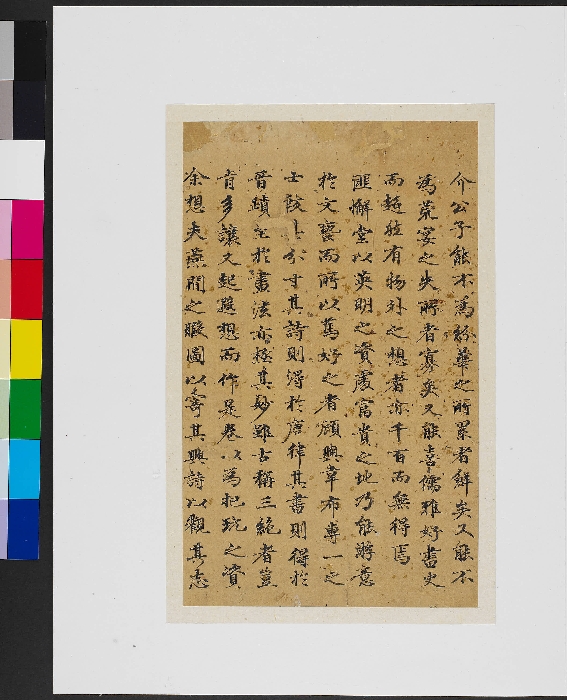 介公子能不為紛華之所累者鮮矣又能不
為荒宴之失所者寡矣又能喜儒雅好書史
而超然有物外之想者亦千百而無得焉
匪懈堂以英明之資處富貴之地乃能游意
於文藝而所以篤好之者顧與韋布專一之
士較其分寸其詩則得於唐律其書則得於
晉蹟至於畫法亦極其妙雖古稱三絕者豈
肯多讓又起遐想而作是卷以為把玩之資
余想夫燕閒之暇圖以寄其興詩以觀其志